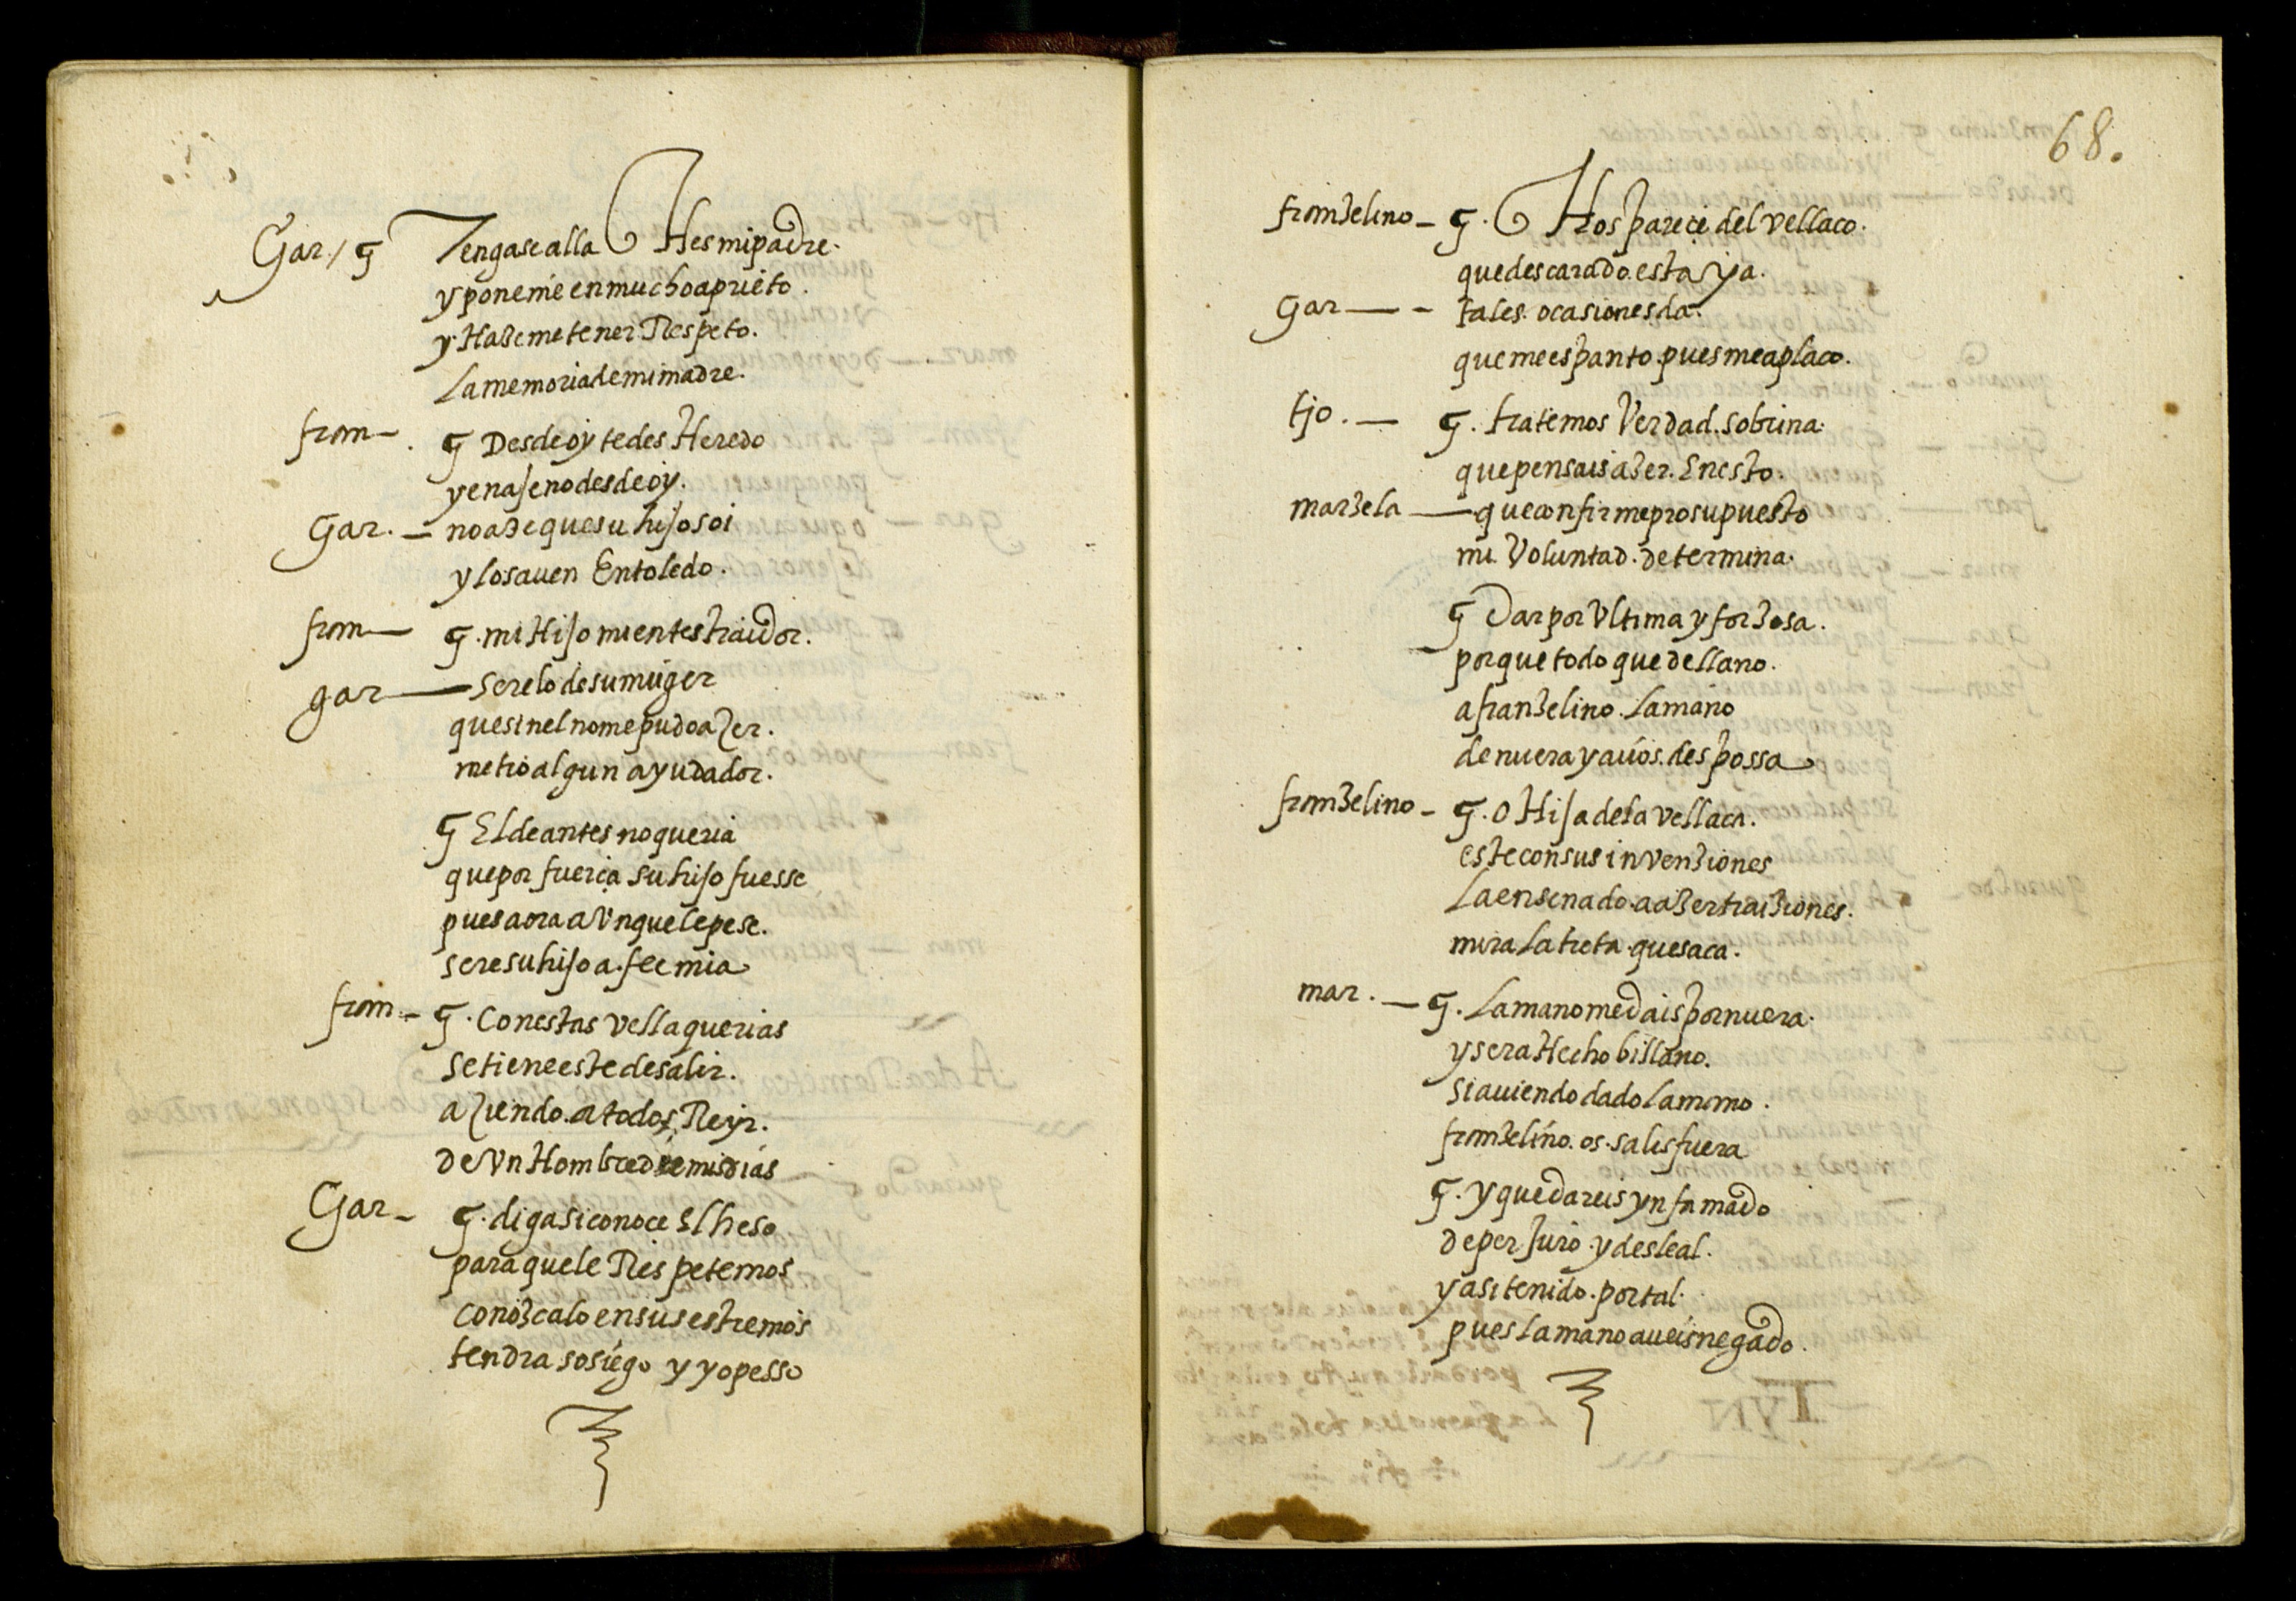 Gar / ꝗ Tengase alla Hes mi padre.
y poneme en mucho aprieto.
y Hazeme tener Respeto.
La memoria de mi madre.
fran — ꝗ Desde oy te des Heredo
y enajeno desde oy.
Gar. — no aze que su hijo soi
y lo saven En toledo.
fran — ꝗ. mi Hijo mientes traidor.
gar — serelo de su muger
que sin el no me pudo azer.
metio algun ayudador.
ꝗ El de antes no queria
que por fuerça su hijo fuesse
pues aora a Vnque le pese.
sere su hijo a. fee mia
fran — ꝗ. Con estas vellaquerias
se tiene este de salir.
aziendo. a todos Reyr.
de Vn Hombre de mis dias
Gar — ꝗ. diga si conoçe El heso
para que le Respetemos
conozcalo en sus estremos
tendra sosiego y yo pesso
68.
franzelino — ꝗ. Hos pareçe del vellaco.
que descarado. esta ya.
Gar — tales. ocasiones da.
que me espanto. pues me aplaco.
tjo. — ꝗ. tratemos Verdad. sobrina.
que pensais azer. En esto.
marzela — que con firme prosupuesto
mi Voluntad. determina.
ꝗ Dar por Vltima y forzosa.
porque todo quede llano.
a franzelino. La mano
de nuera y a vos. despossa
franzelino — ꝗ. o Hija de la vellaca.
este con sus invenziones
La ensenado. a azer traiziones.
mira La treta. que saca.
mar. — ꝗ. La mano me dais por nuera.
y sera Hecho billano.
si auiendo dado La mano.
franzelino. os. salis fuera
ꝗ. y quedareis ynfamado
de perjuro. y desleal.
y asi tenido. por tal.
pues La mano aueis negado.